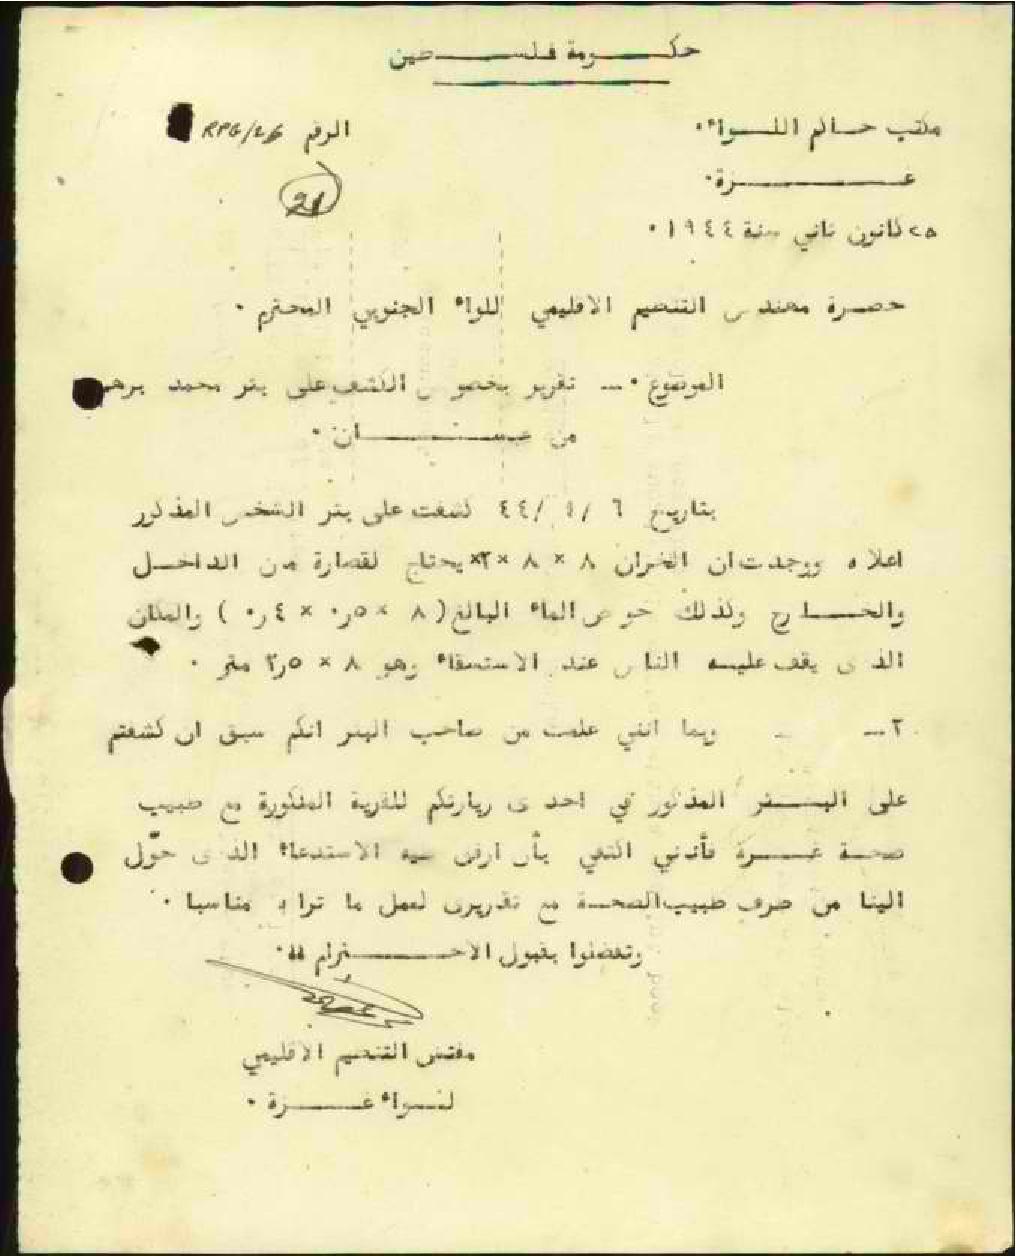 حكومة فلسطين
مكتب حاكم اللواء٠
الرقم RPG/26
غزة٠
21
٢٥ كانون ثاني سنة ١٩٤٤ ٠
حضرة مهندس التنظيم الاقليمي للواء الجنوبي المحترم ٠
الموضوع ٠ــ تقرير بخصوص الكشف على بئر محمد برهم
من ٠
بتاريخ ٦ /١ /٤٤ كشفت على بئر الشخص المذكور
اعلاه ووجدت ان الخزان ٨ × ٨ ×٢× يحتاج لقصارة من الداخل
والخارج وكذلك حوض الماء البالغ ( ٨ × ٥ر٠ × ٤ر٠ ) والمكان
الذى يقف عليه الناس عند الاستسقاء وهو ٨ × ٥ر٢ متر ٠
٢ــ وبما انني علمت من صاحب البئر انكم سبق ان كشفتم
على البئر المذكور في احدى زيارتكم للقرية المذكورة مع طبيب
صحة غزة فأنني اكتفي بأن ارفق طيه الاستدعاء الذى حوّل
الينا من طرف طبيب الصحة مع تقريرى لعمل ما تراه مناسبا ٠
وتفضلوا بقبول الاحترام ٠
مفتش التنظيم الاقليمي
لواء غزة ٠